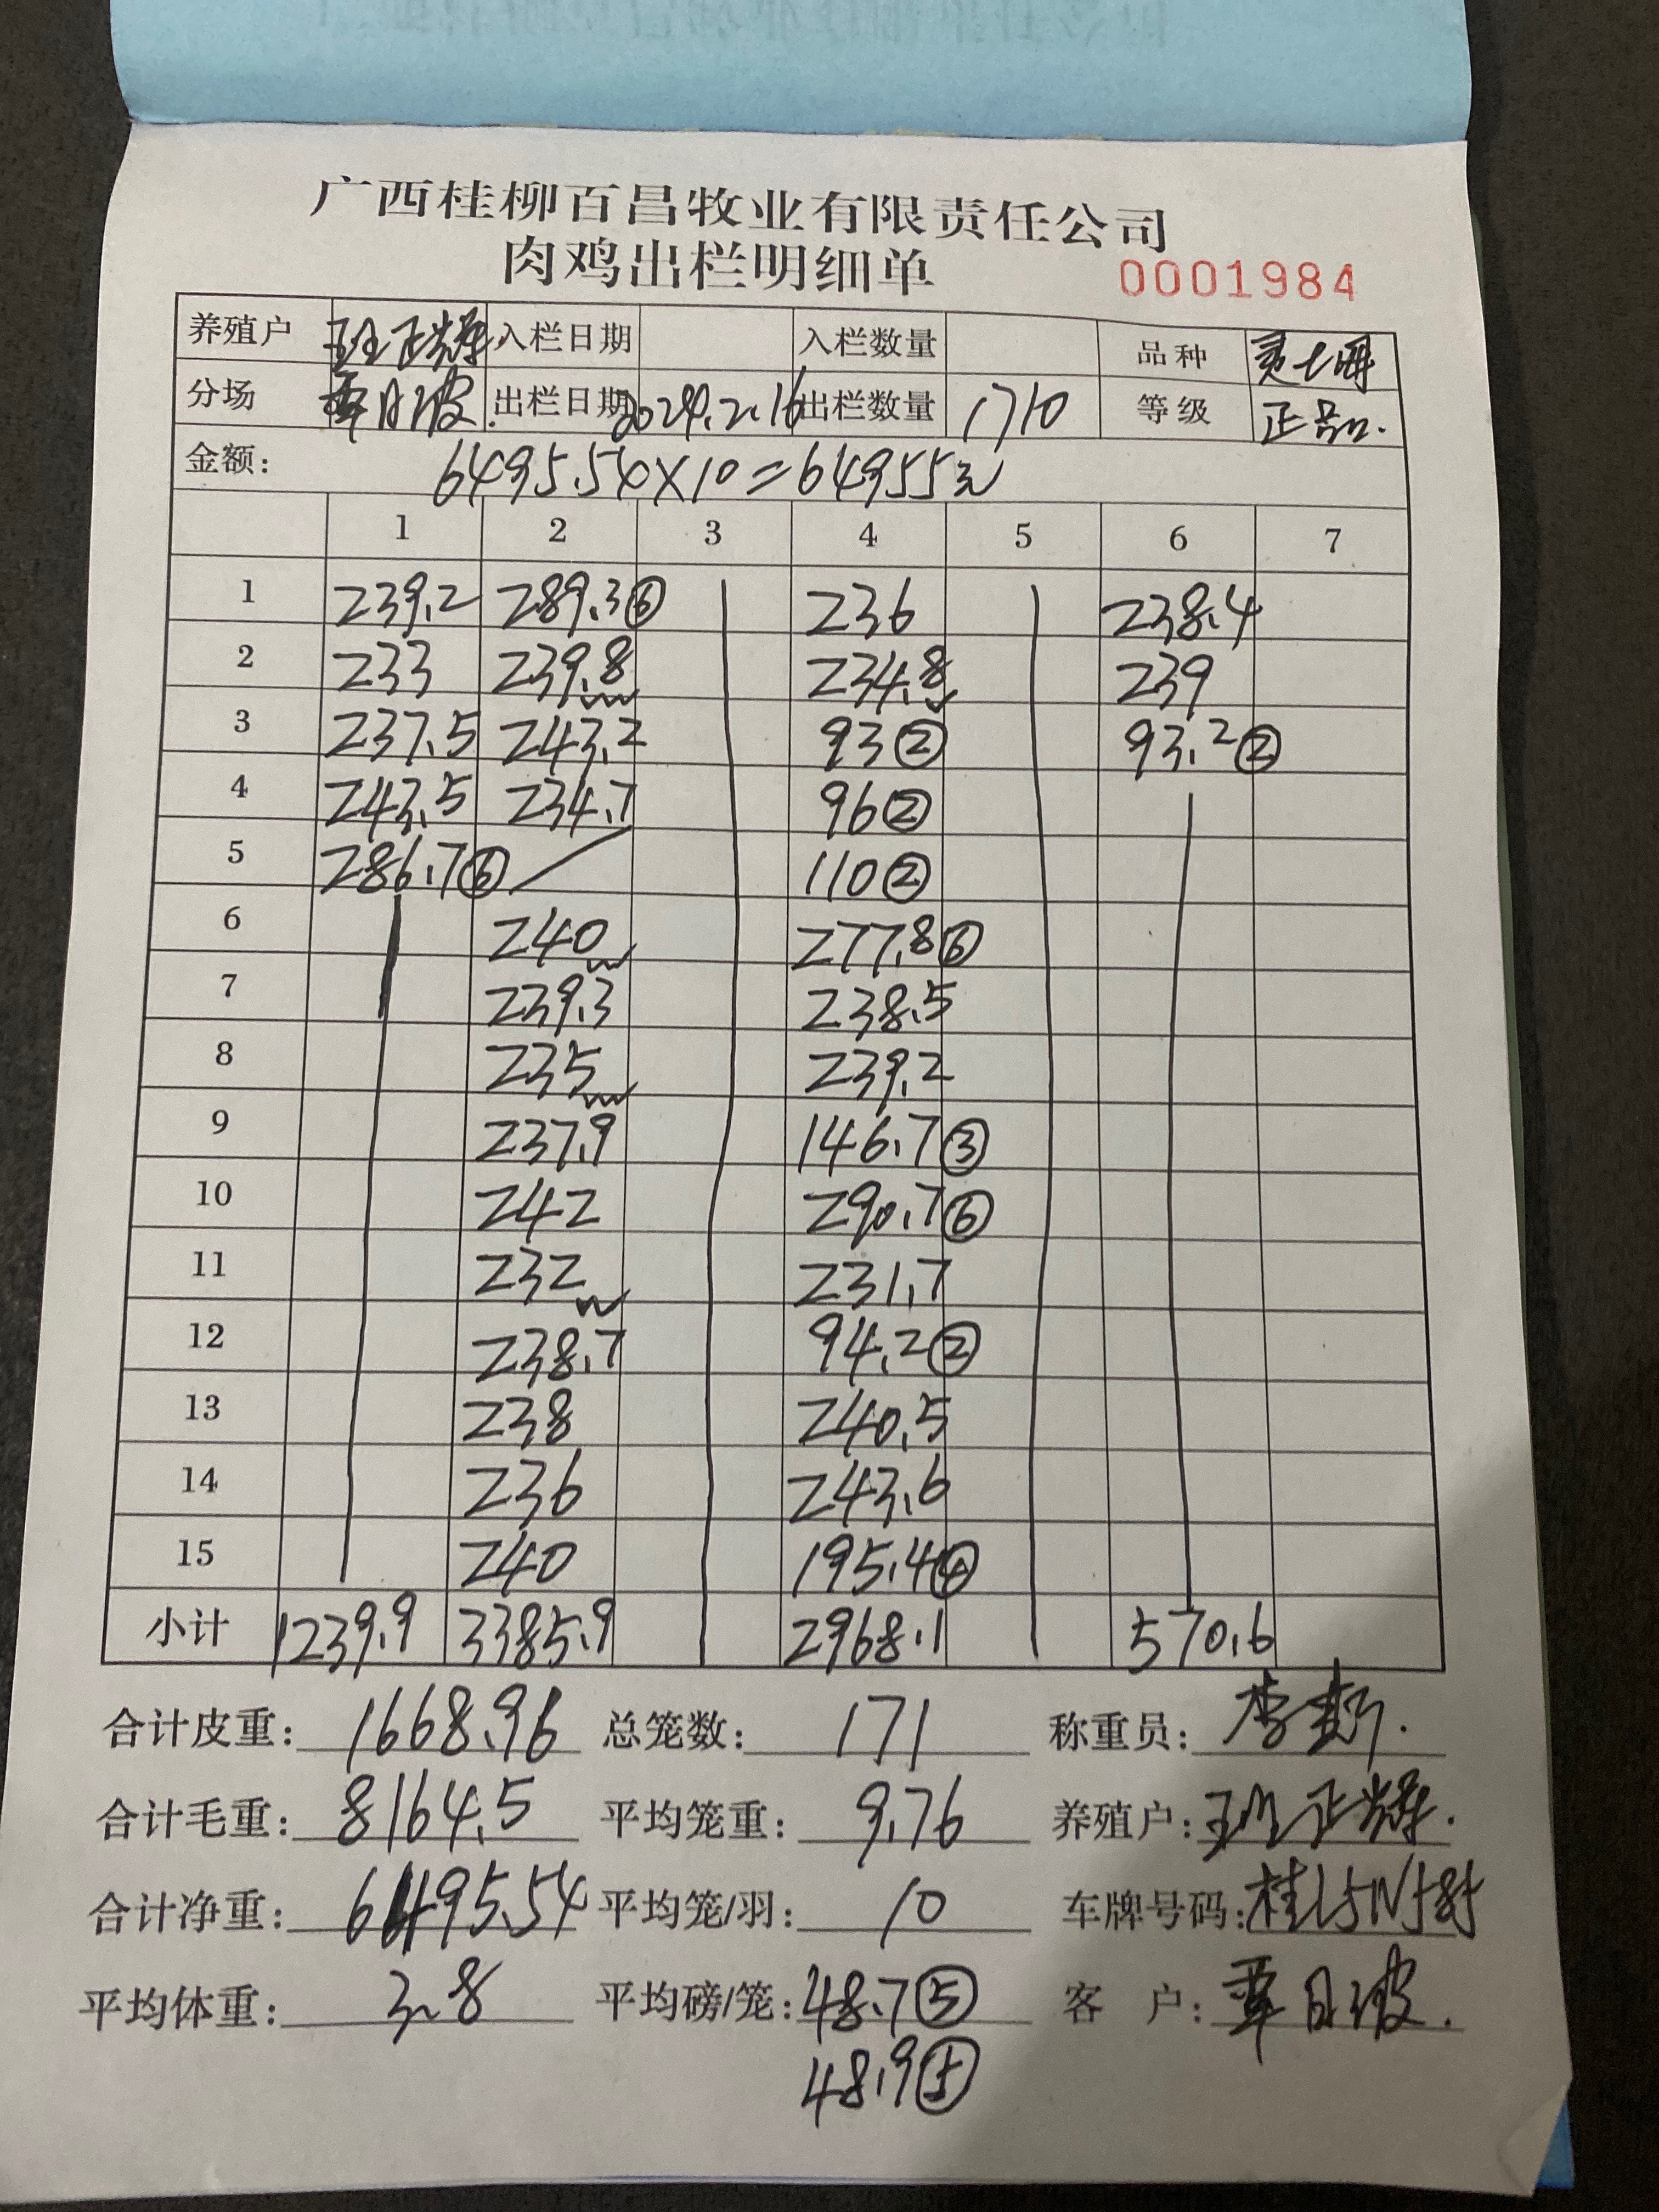 广西桂柳百昌牧业有限责任公司
肉鸡出栏明细单 0001984
养殖户 班正辉 入栏日期 入栏数量 品种
分场 覃日波. 出栏日期 2024.2.16 出栏数量 1710 等级 正品.
金额: 6495.54×10=64955元
1 2 3 4 5 6 7
1 239.2 289.3⑥ 236 238.4
2 233 239.8 234.8 239
3 237.5 243.2 93② 93.2②
4 243.5 234.7 96②
5 286.7⑥ 110②
6 240 277.8⑥
7 239.3 238.5
8 235 239.2
9 237.9 146.7③
10 242 290.7⑥
11 232 231.7
12 238.7 94.2②
13 238 240.5
14 236 243.6
15 240 195.4④
小计 1239.9 3385.9 2968.1 570.6
合计皮重: 1668.96 总笼数: 171 称重员:
合计毛重: 8164.5 平均笼重: 9.76 养殖户: 班正辉.
合计净重: 6495.54 平均笼/羽: 10 车牌号码:
平均体重: 3.8 平均磅/笼: 48.7⑤ 客 户: 覃日波.
48.9⑤